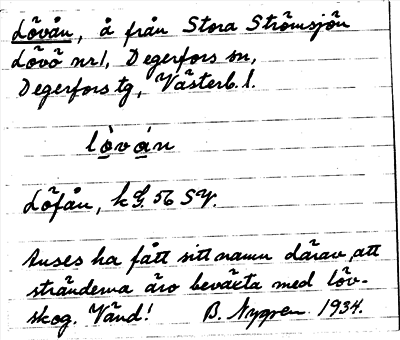 Lövån, å från Stora Strömsjön
Lövö nr 1, Degerfors sn,
Degerfors tg, Västerb. l.
lò̱vá̱n
Löfån, kG. 56 SV.
Anses ha fått sitt namn därav, att
stränderna äro beväxta med löv-
skog. Vänd! B. Nygren 1934.